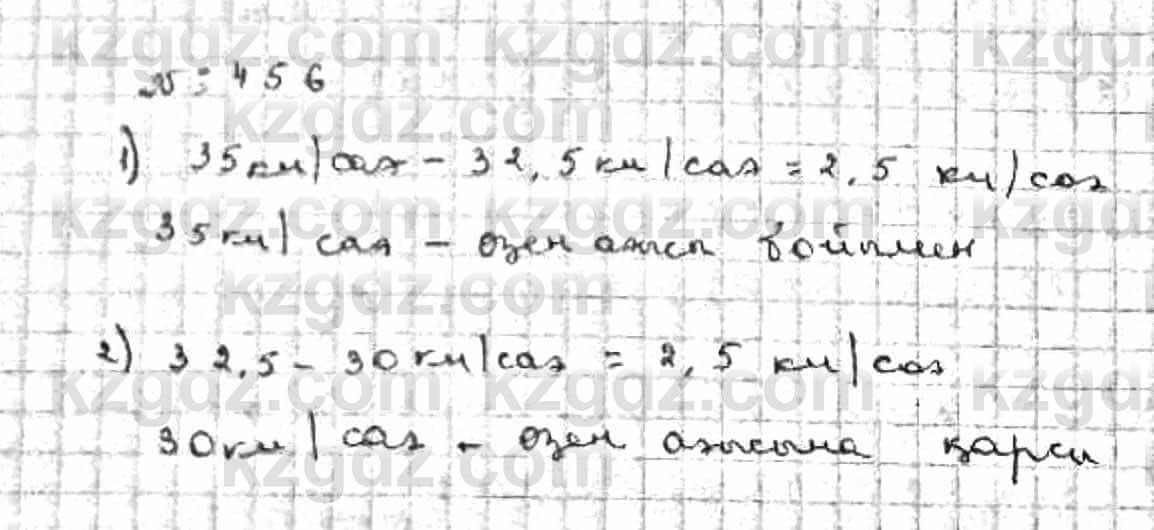 № 456
1) 35км/сағ - 32,5км/сағ = 2,5 км/сағ
35км/сағ - өзен ағысы бойымен
2) 32,5 - 30км/сағ = 2,5 км/сағ
30км/сағ - өзен ағысына қарсы
kzgdz.com